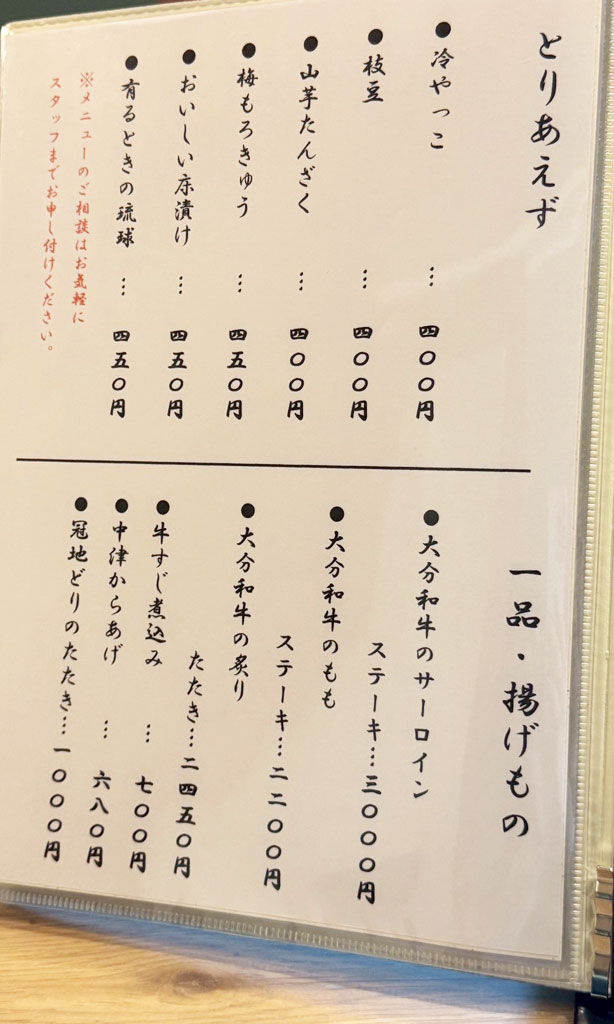 とりあえず
●冷やっこ … 四〇〇円
●枝豆 … 四〇〇円
●山芋たんざく … 四〇〇円
●梅もろきゅう … 四五〇円
●おいしい床漬け … 四五〇円
●有るときの琉球 … 四五〇円
※メニューのご相談はお気軽に
スタッフまでお申し付けください。
一品・揚げもの
●大分和牛のサーロイン
ステーキ…三〇〇〇円
●大分和牛のもも
ステーキ…二二〇〇円
●大分和牛の炙り
たたき…二四五〇円
●牛すじ煮込み … 七〇〇円
●中津からあげ … 六八〇円
●冠地どりのたたき…一〇〇〇円